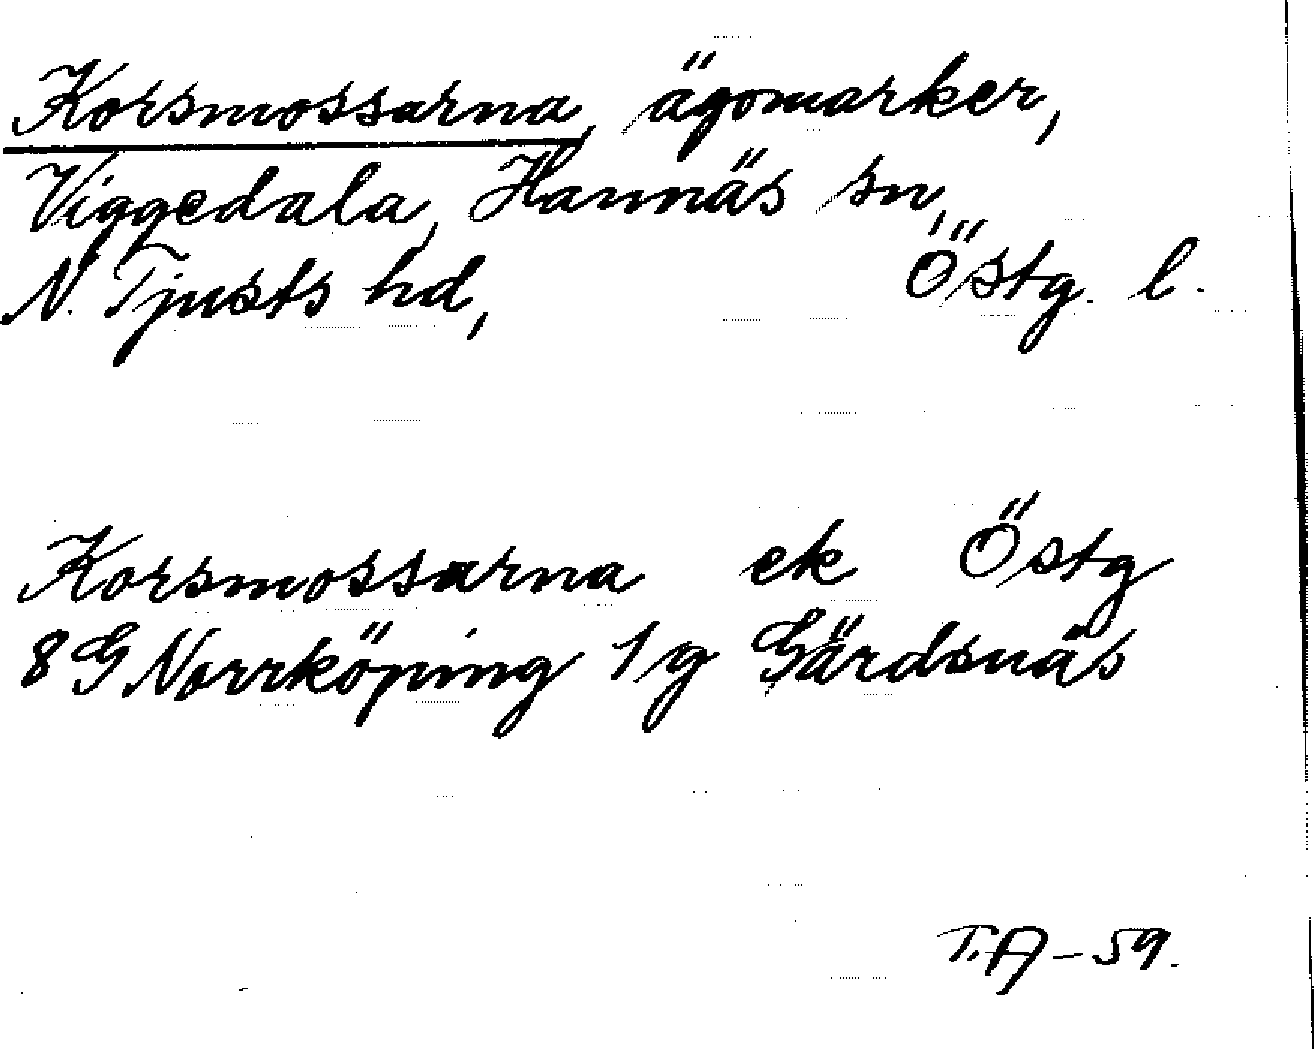 Korsmossarna, ägomarker,
Viggedala, Hannäs sn,
N. Tjusts hd, Östg. l.
Korsmossarna ek Östg
8 G Norrköping 1 g Gärdsnäs
T.A-59.